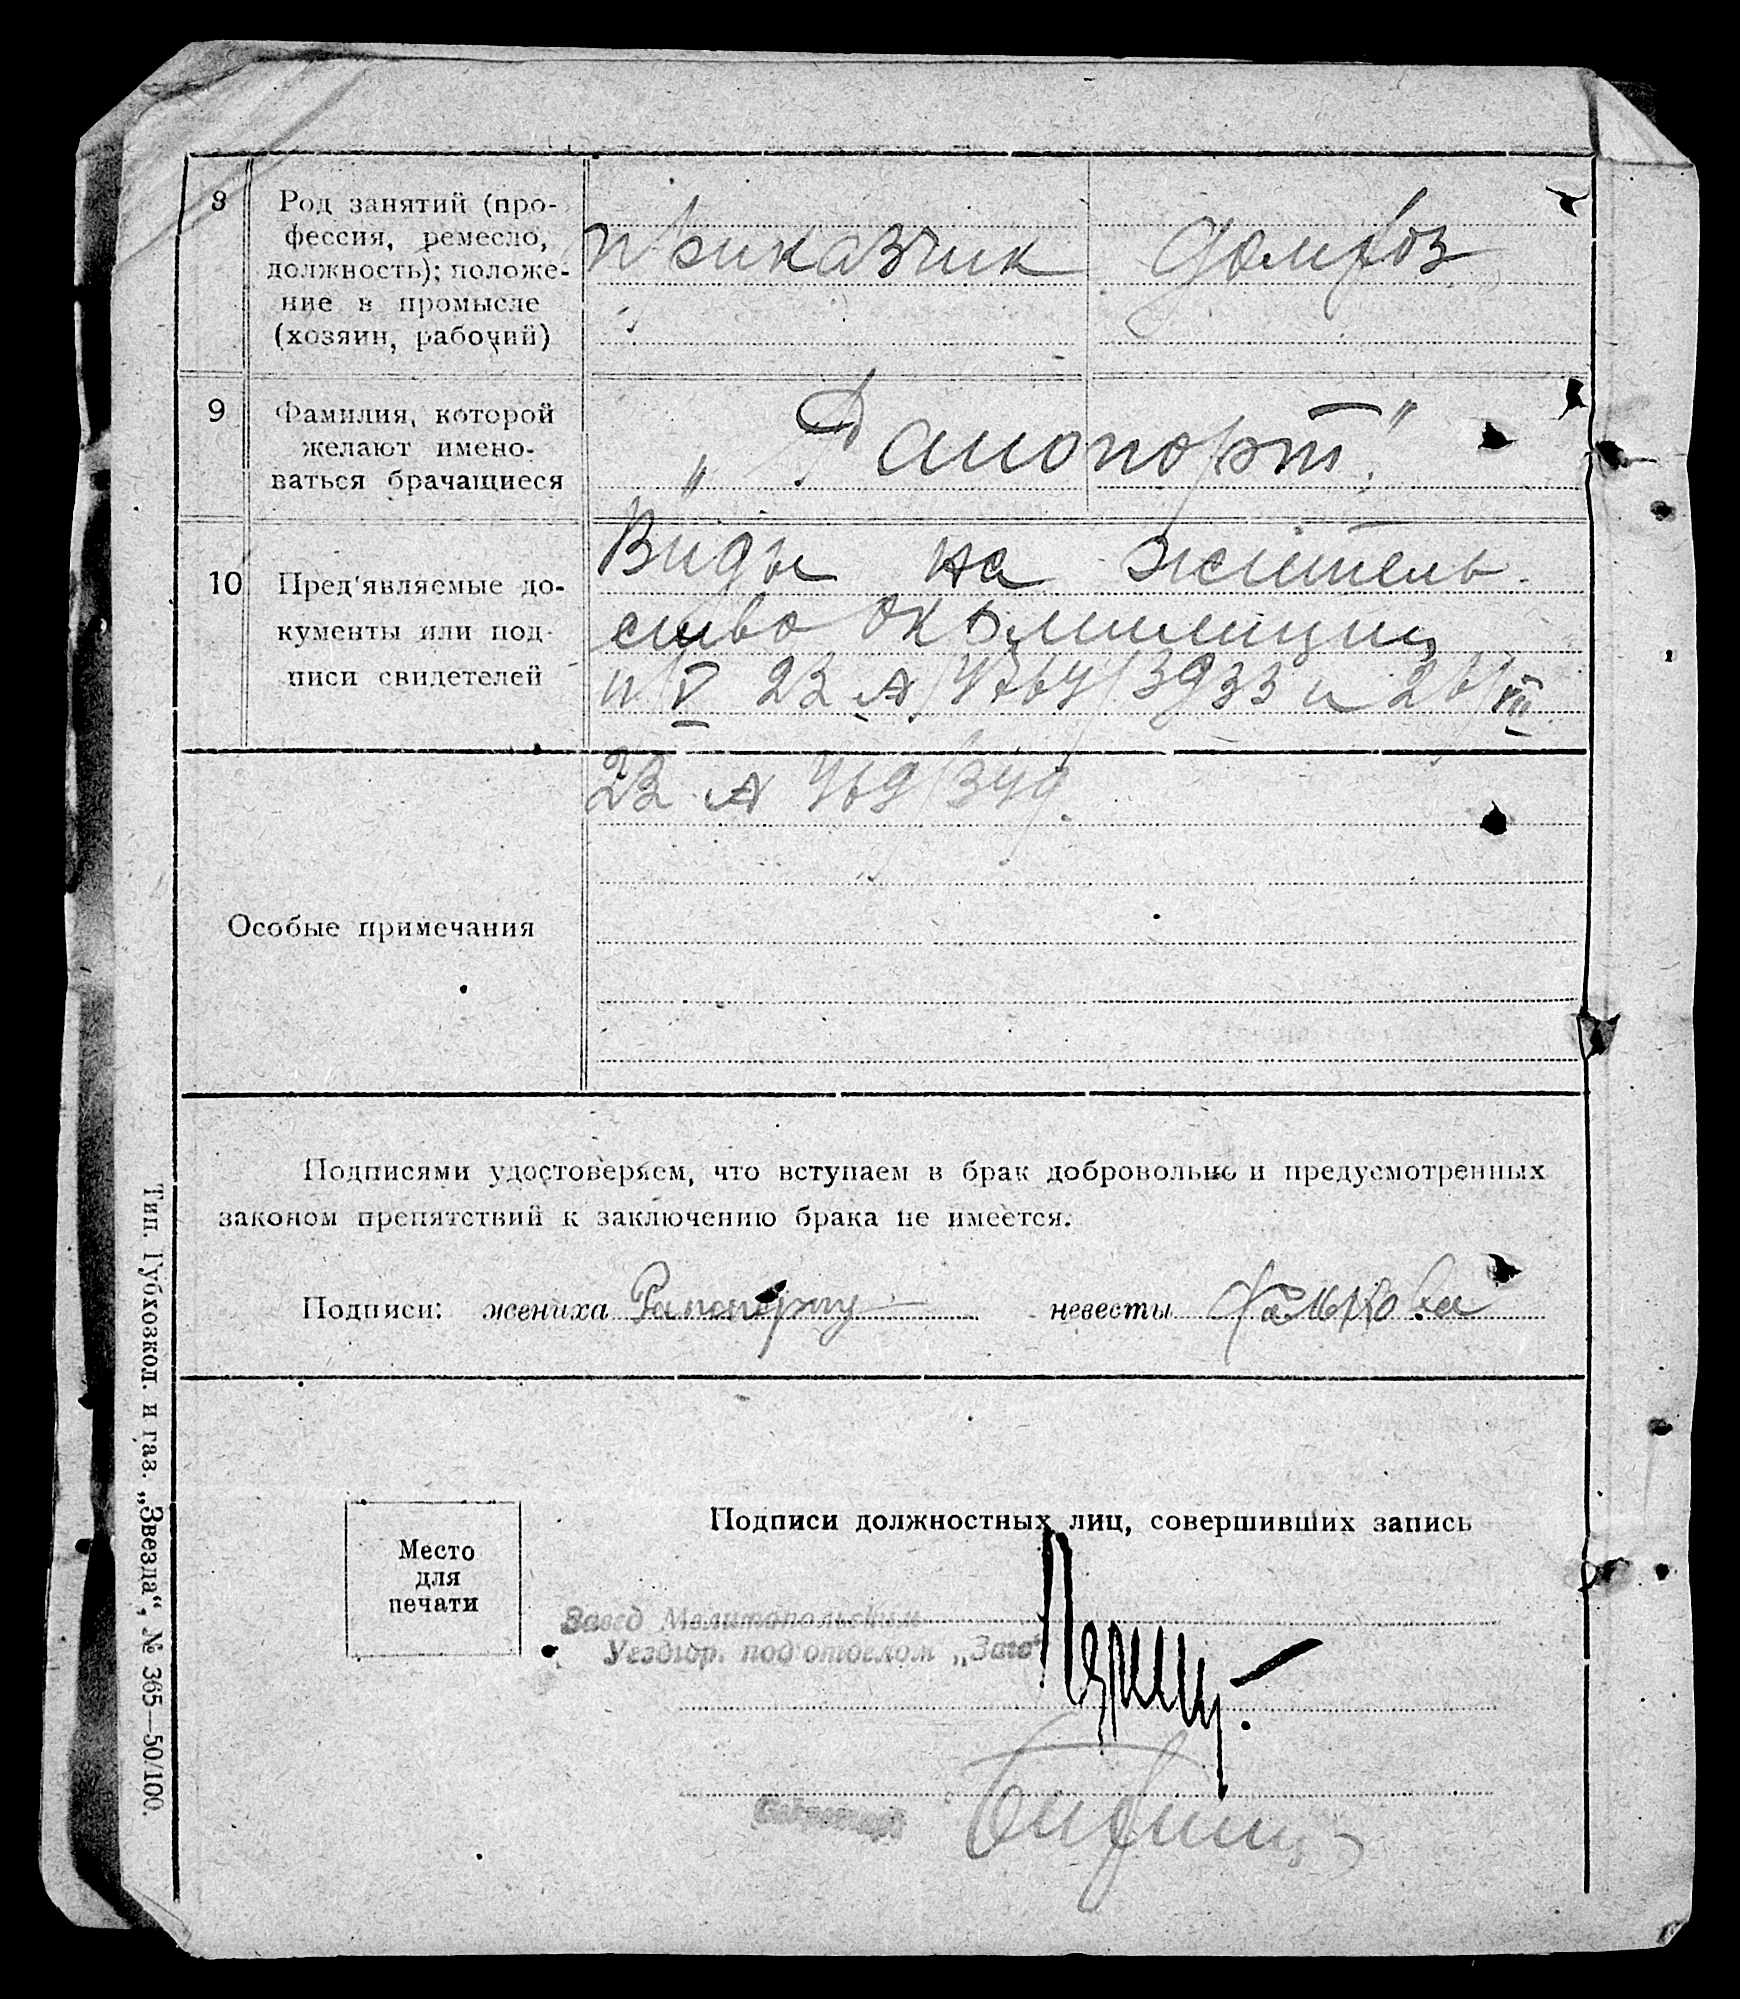 8 Род занятий (про-
фессия, ремесло,
должность); положе-
ние в промысле
(хозяин, рабочий)
приказчик домхоз
9 Фамилия, которой
желают имено-
ваться брачащиеся
„Рапопорт"
10 Пред'являемые до-
кументы или под-
писи свидетелей
Виды на житель
ство окр милиции
23 №
Особые примечания
Подписями удостоверяем, что вступаем в брак добровольно и предусмотренных
законом препятствий к заключению брака не имеется.
Подписи: жениха Рапопорту невесты
Подписи должностных лиц, совершивших запись
Место
для
печати
Завед Мелитопольским
Уездгор. под'отделом „Загс"
Тип. Губхозкол. и газ. „Звезда“, № 365—50/100.